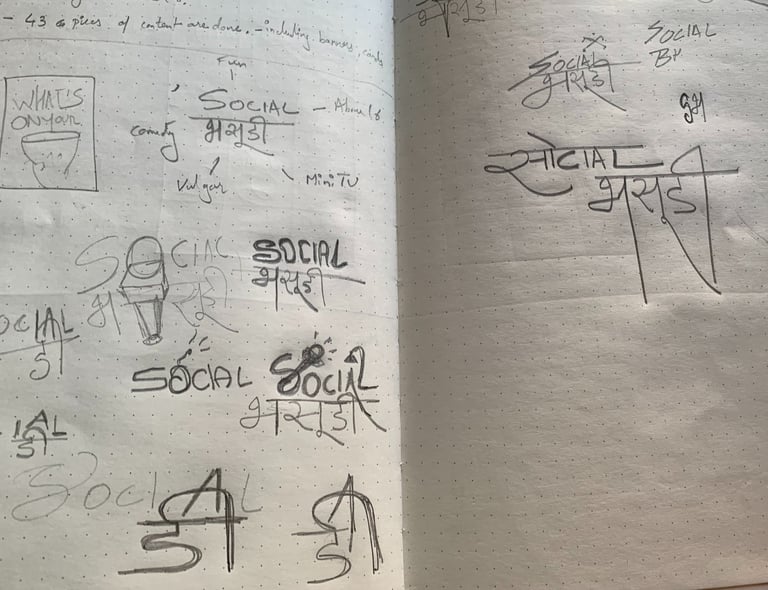 - 43 pieces of content are done. - including banners,
Fun
WHAT'S
ON YOUR
SOCIAL
comedy
भसूडी
Vulgar
Mini TV
SOCIAL
भसूडी
SOCIAL
भसूडी
OCIAL
डी
SOCIAL
SOCIAL
भसूडी
IAL
डी
SOCIAL
डी
A
डी
भसूडी
SOCIAL
भसूडी
SOCIAL
सोCIAL
भसूडी